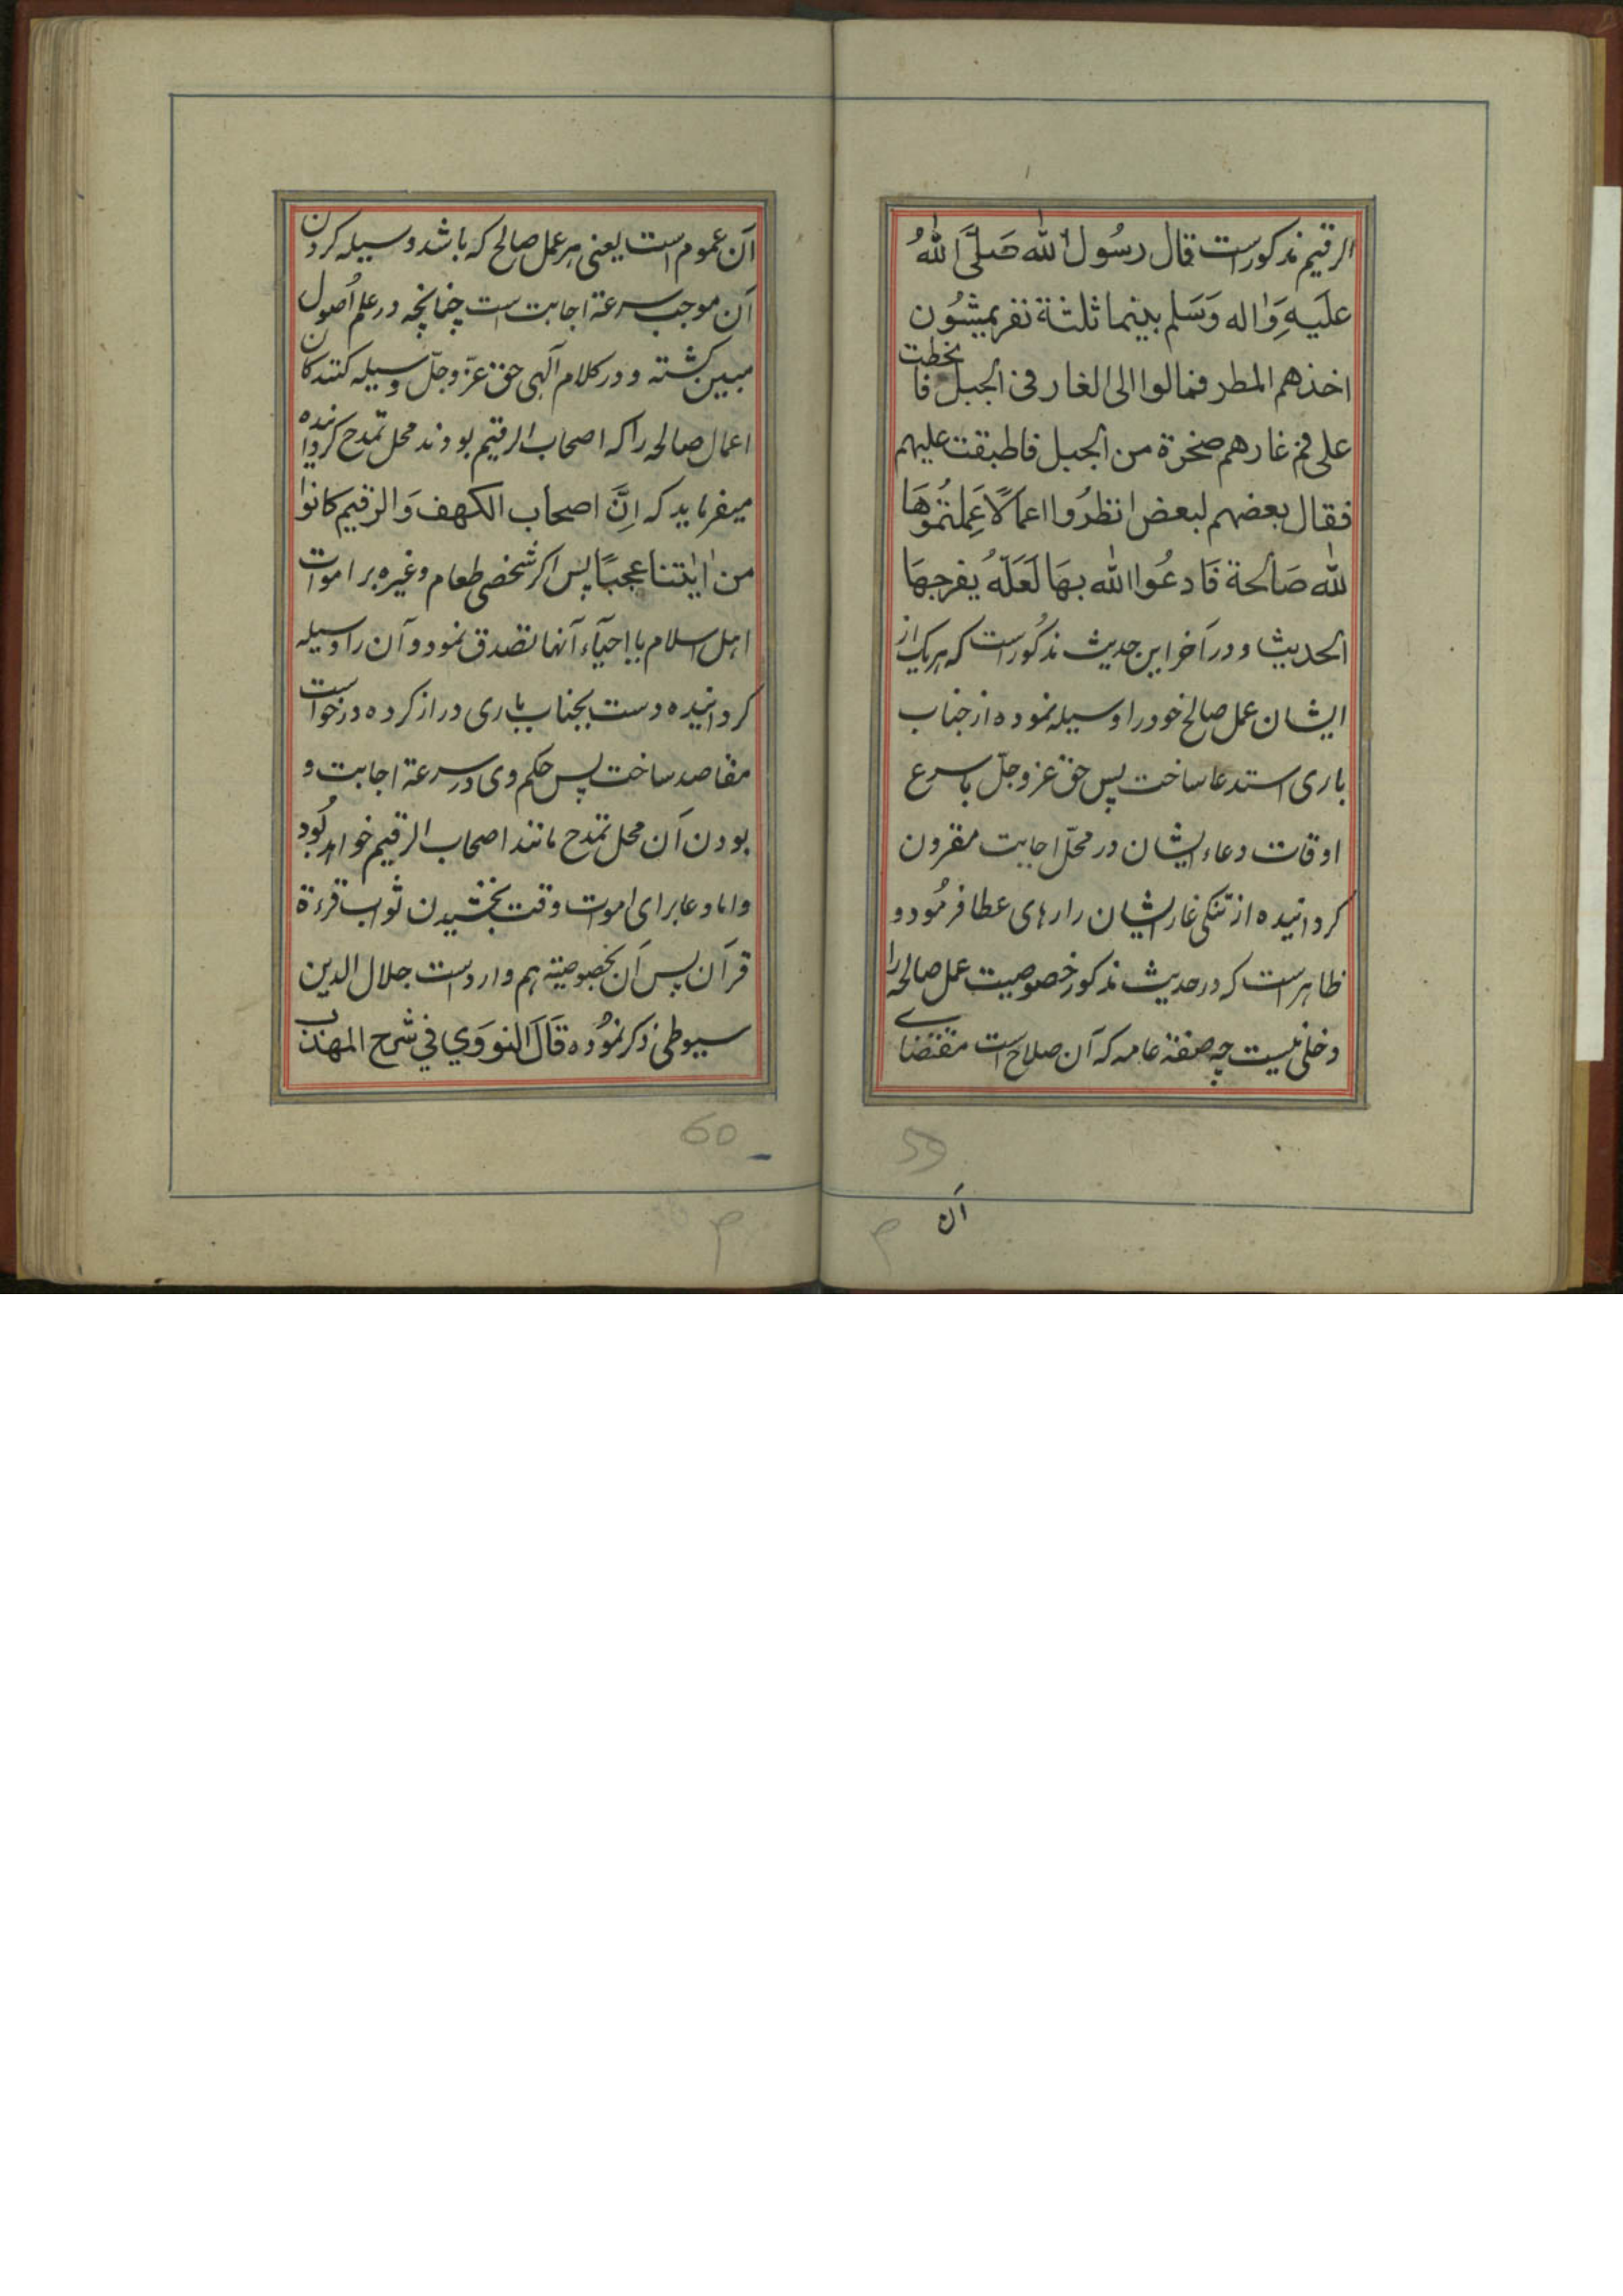 الرقیم مذکور است قال رسُول الله صَلَّی اللهُ
علَیهِ وَاله وَسَلم بینما ثلثة نفر یمشُون
اخذهم المطر فمالوا الی الغار فی الجبل فانحطت
علی فم غارهم صخرة من الجبل فاطبقت علیهم
فقال بعضهم لبعض انظرُوا اعمالًا عَمِلتمُوهَا
لله صَالحة فَادعُوا الله بهَا لَعَلّهُ یفرجهَا
الحدیث و در آخر این حدیث مذکُور است که هریک از
ایشان عمل صالح خود را وسیله نموده از جناب
باری استدعا ساخت پس حق عز وجلّ باسرع
اوقات دعاء ایشان در محلّ اجابت مقرون
کردانیده از تنکی غار ایشان را رهای عطا فرمُود و
ظاهر است که در حدیث مذکور خصوصیت عمل صالحه را
دخلی نیست چه صفة عامه که آن صلاح است مقتضای
آن
آن عموم است یعنی هر عمل صالح که باشد وسیله کردن
آن موجب سرعة اجابت است چنانچه در علم اُصول
مبین کشته و در کلام آلهی حق عزّ وجلّ وسیله کنندکان
اعمال صالحه را که اصحاب الرقیم بودند محل تمدح کردانیده
میفرماید که اِنَّ اصحاب الکهف وَالرقیم کانوا
من اٰیٰتنا عجبًا پس اکر شخصی طعام و غیره بر اموات
اهل اسلام یا احیآء آنها تصدق نمود و آن را وسیله
کردانیده دست بجناب باری دراز کرده درخواست
مقاصد ساخت پس حکم وی در سرعة اجابت و
بودن آن محل تمدح مانند اصحاب الرقیم خواهد بُود
و اما دعا برای اموات وقت بخشیدن ثواب قرءة
قرآن پس آن بخصوصیته هم وارد است جلال الدین
سیوطی ذکر نمُوده قَالَ النووَي في شرح المهذب
59
60